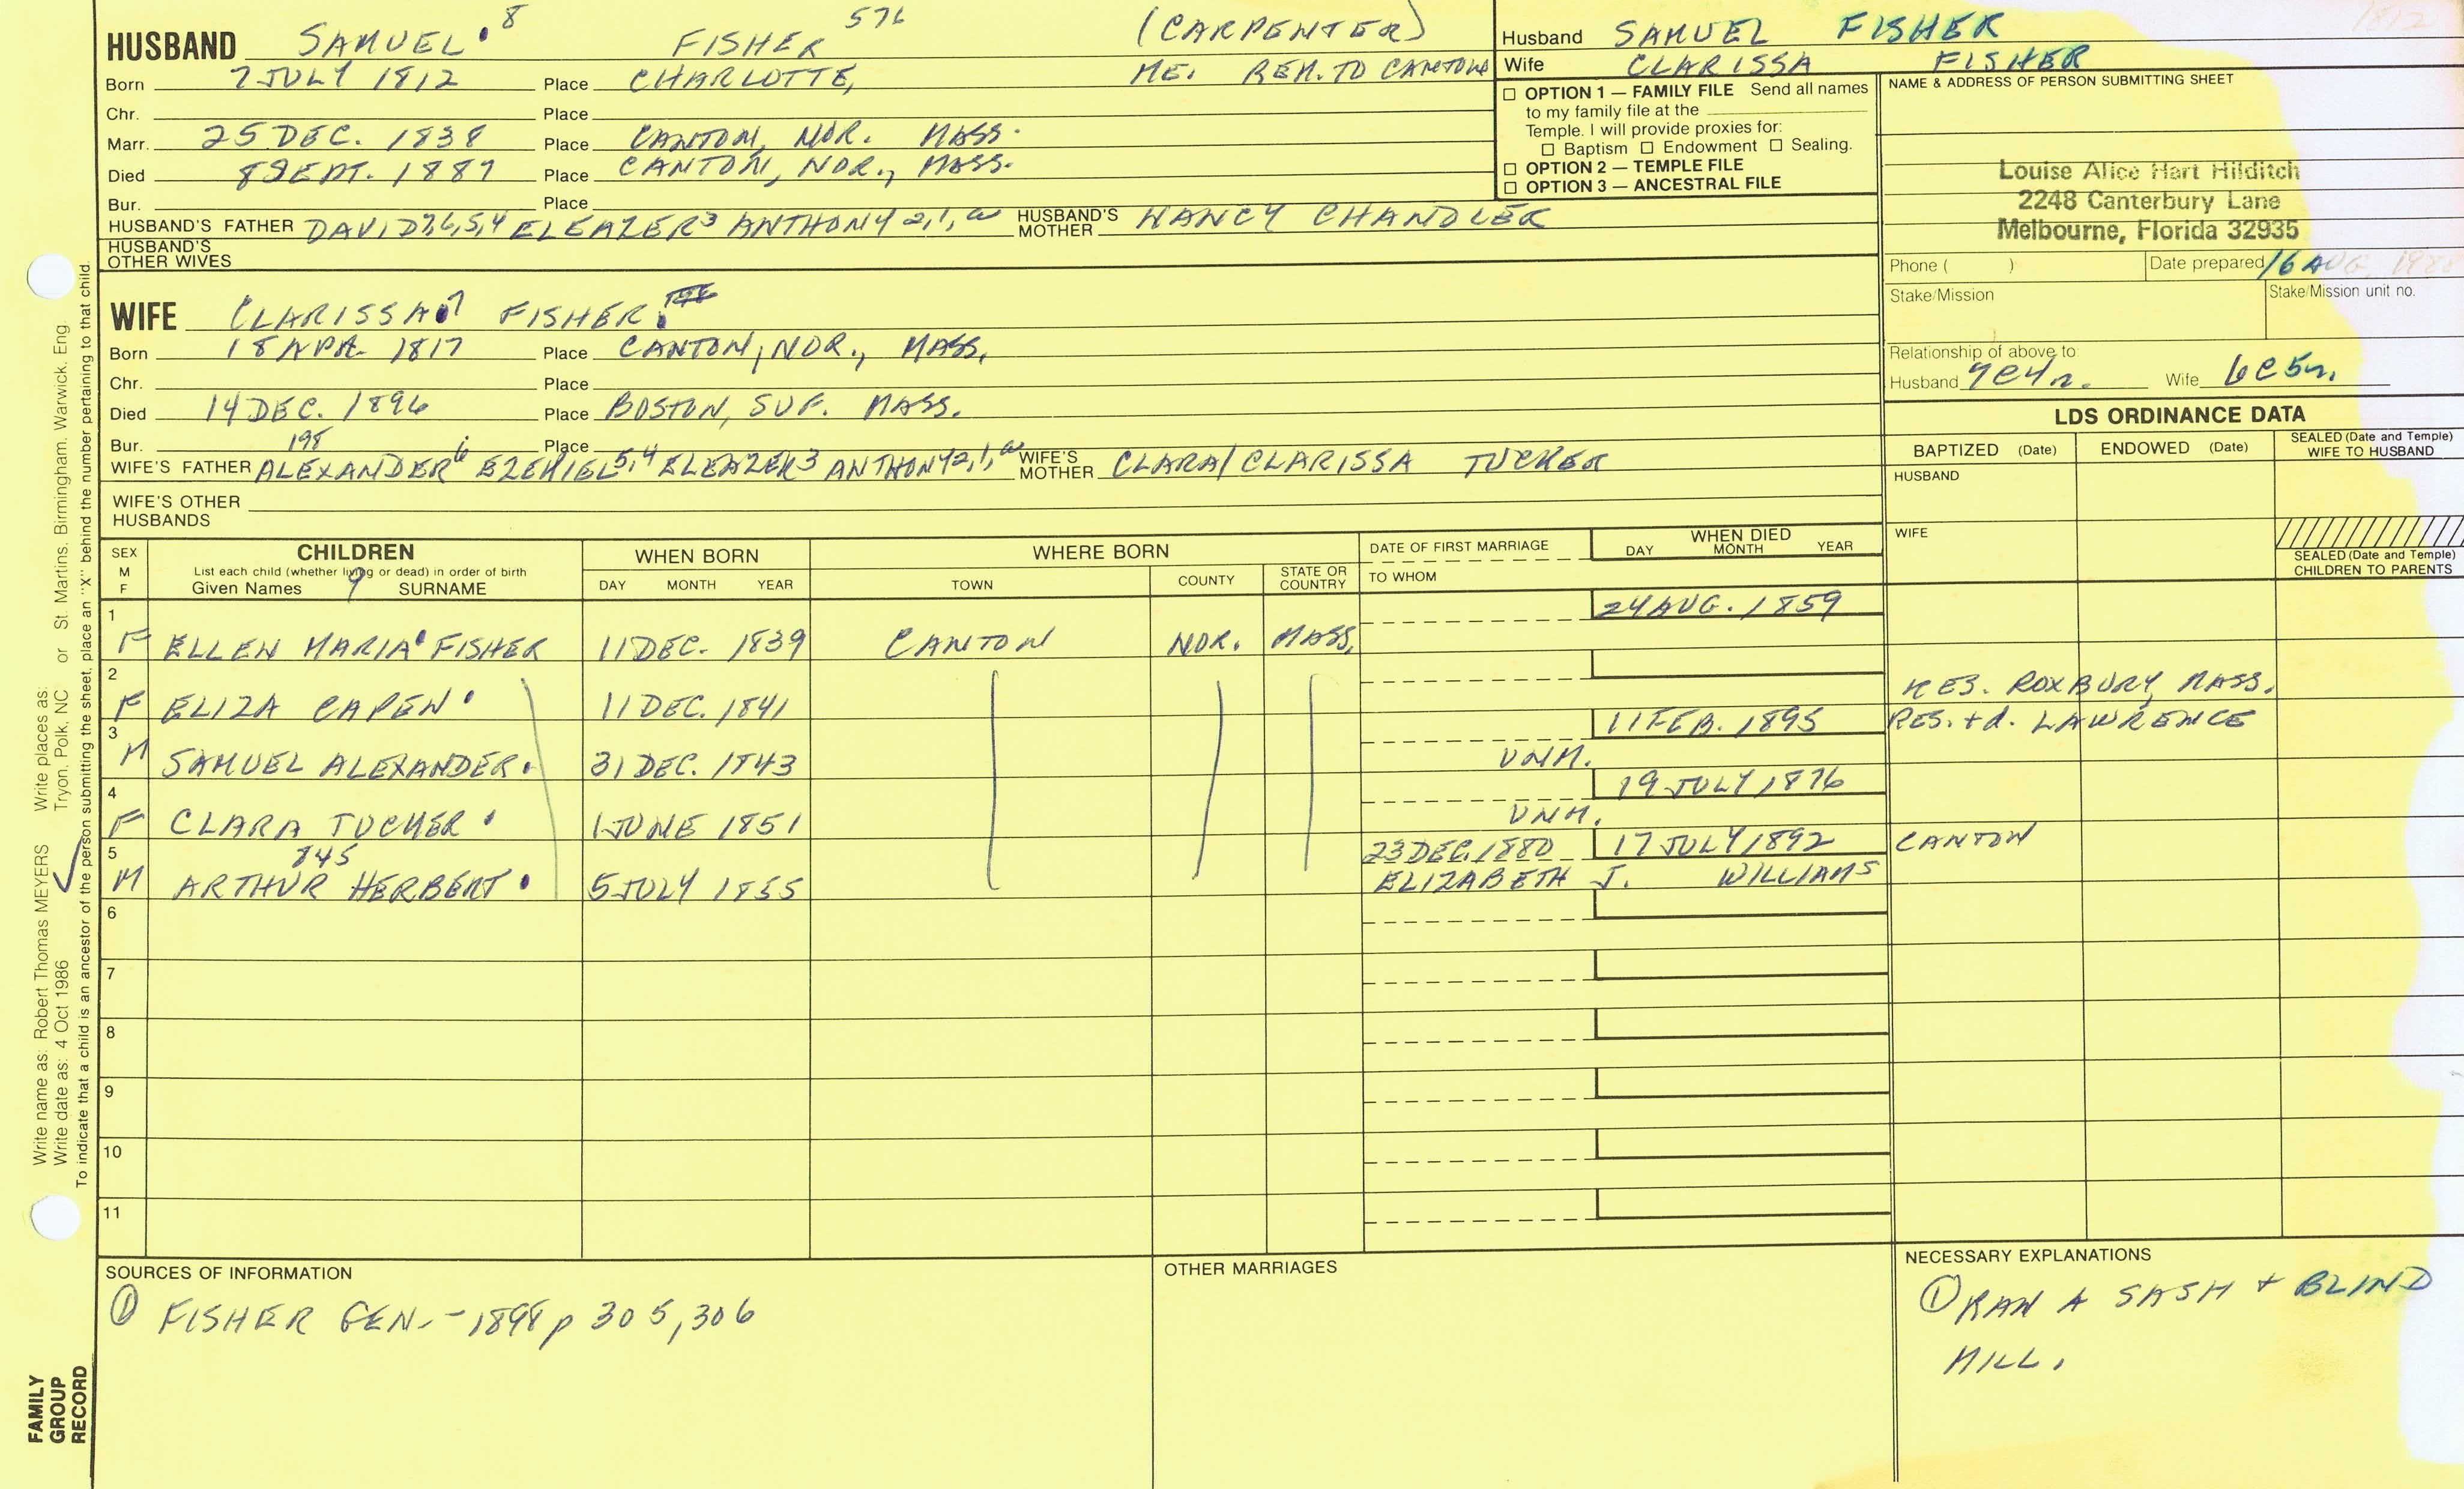 HUSBAND SAMUEL 8 FISHER 576 (CARPENTER)
Born 7 JULY 1812 Place CHARLOTTE, ME. REM. TO CANTON
Chr. Place
Marr. 25 DEC. 1838 Place CANTON, NOR. MASS.
Died 8 SEPT. 1887 Place CANTON, NOR., MASS.
Bur. Place
HUSBAND'S FATHER DAVID 7,6,5,4 ELEAZER 3 ANTHONY 2,1,a HUSBAND'S MOTHER NANCY CHANDLER
HUSBAND'S OTHER WIVES
Husband SAMUEL FISHER
Wife CLARISSA FISHER
1812
☐ OPTION 1 — FAMILY FILE Send all names
to my family file at the
Temple. I will provide proxies for:
☐ Baptism ☐ Endowment ☐ Sealing.
☐ OPTION 2 — TEMPLE FILE
☐ OPTION 3 — ANCESTRAL FILE
NAME & ADDRESS OF PERSON SUBMITTING SHEET
Louise Alice Hart Hilditch
2248 Canterbury Lane
Melbourne, Florida 32935
Phone ( ) Date prepared 16 AUG.
Stake/Mission Stake/Mission unit no.
Relationship of above to:
Husband 7C4r. Wife 6C5r.
WIFE CLARISSA 7 FISHER
Born 18 APR. 1817 Place CANTON, NOR., MASS.
Chr. Place
Died 14 DEC. 1896 Place BOSTON, SUF. MASS.
Bur. Place
198
WIFE'S FATHER ALEXANDER 6 EZEKIEL 5,4 ELEAZER 3 ANTHONY 2,1,a WIFE'S MOTHER CLARA/CLARISSA TUCKER
WIFE'S OTHER HUSBANDS
LDS ORDINANCE DATA
BAPTIZED (Date) ENDOWED (Date) SEALED (Date and Temple) WIFE TO HUSBAND
HUSBAND
WIFE
SEALED (Date and Temple) CHILDREN TO PARENTS
SEX M F
CHILDREN
List each child (whether living or dead) in order of birth
Given Names 9 SURNAME
WHEN BORN
DAY MONTH YEAR
WHERE BORN
TOWN COUNTY STATE OR COUNTRY
DATE OF FIRST MARRIAGE
TO WHOM
WHEN DIED
DAY MONTH YEAR
1 24 AUG. 1859
F ELLEN MARIA FISHER 11 DEC. 1839 CANTON NOR. MASS.
2
F ELIZA CAPEN 11 DEC. 1841 RES. ROXBURY, MASS.
3 11 FEB. 1895 RES. + d. LAWRENCE
M SAMUEL ALEXANDER 31 DEC. 1843 UNM.
4 19 JULY 1876
F CLARA TUCKER 1 JUNE 1851 UNM.
5 845 23 DEC. 1880 17 JULY 1892 CANTON
M ARTHUR HERBERT 5 JULY 1855 ELIZABETH J. WILLIAMS
6
7
8
9
10
11
SOURCES OF INFORMATION
① FISHER GEN. - 1898 p 305, 306
OTHER MARRIAGES
NECESSARY EXPLANATIONS
① RAN A SASH + BLIND
MILL.
Write name as: Robert Thomas MEYERS Write places as: St. Martins, Birmingham, Warwick, Eng.
Write date as: 4 Oct 1986 Tryon, Polk, NC or
To indicate that a child is an ancestor of the person submitting the sheet, place an "X" behind the number pertaining to that child.
FAMILY
GROUP
RECORD